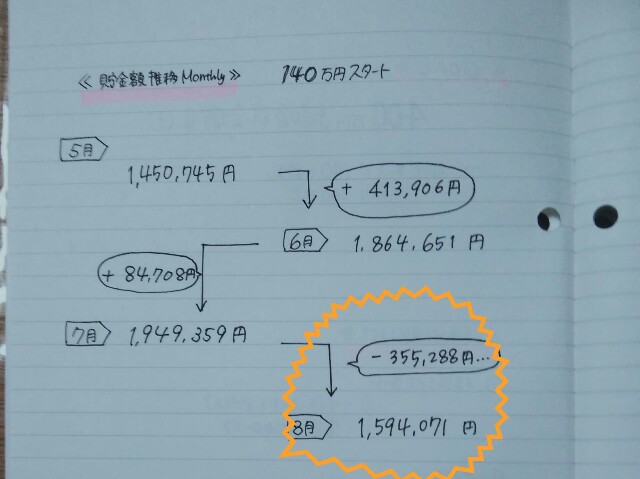 ≪貯金額推移Monthly≫ 140万円スタート
5月
1,450,745円
+ 413,906円
6月 1,864,651円
+ 84,708円
7月 1,949,359円
- 355,288円...
8月 1,594,071円